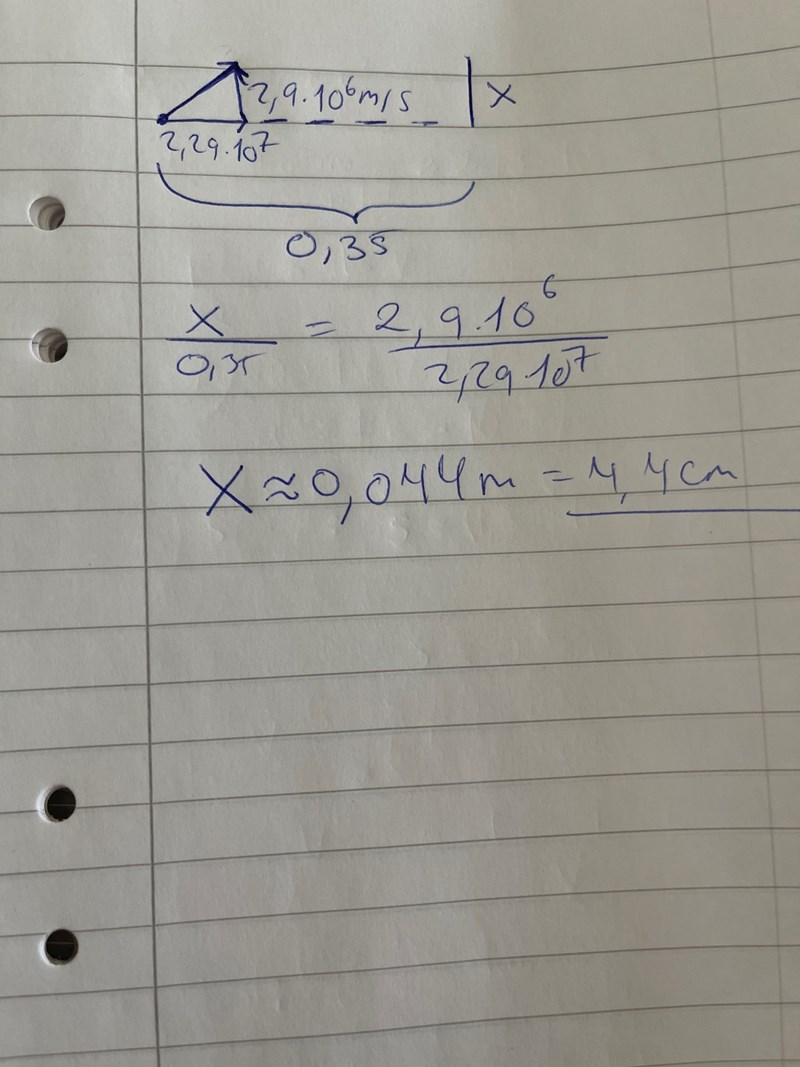 2,9·10⁶m/s
X
2,29·10⁷
0,35
X/0,35 = 2,9·10⁶/2,29·10⁷
X≈0,044m = 4,4cm